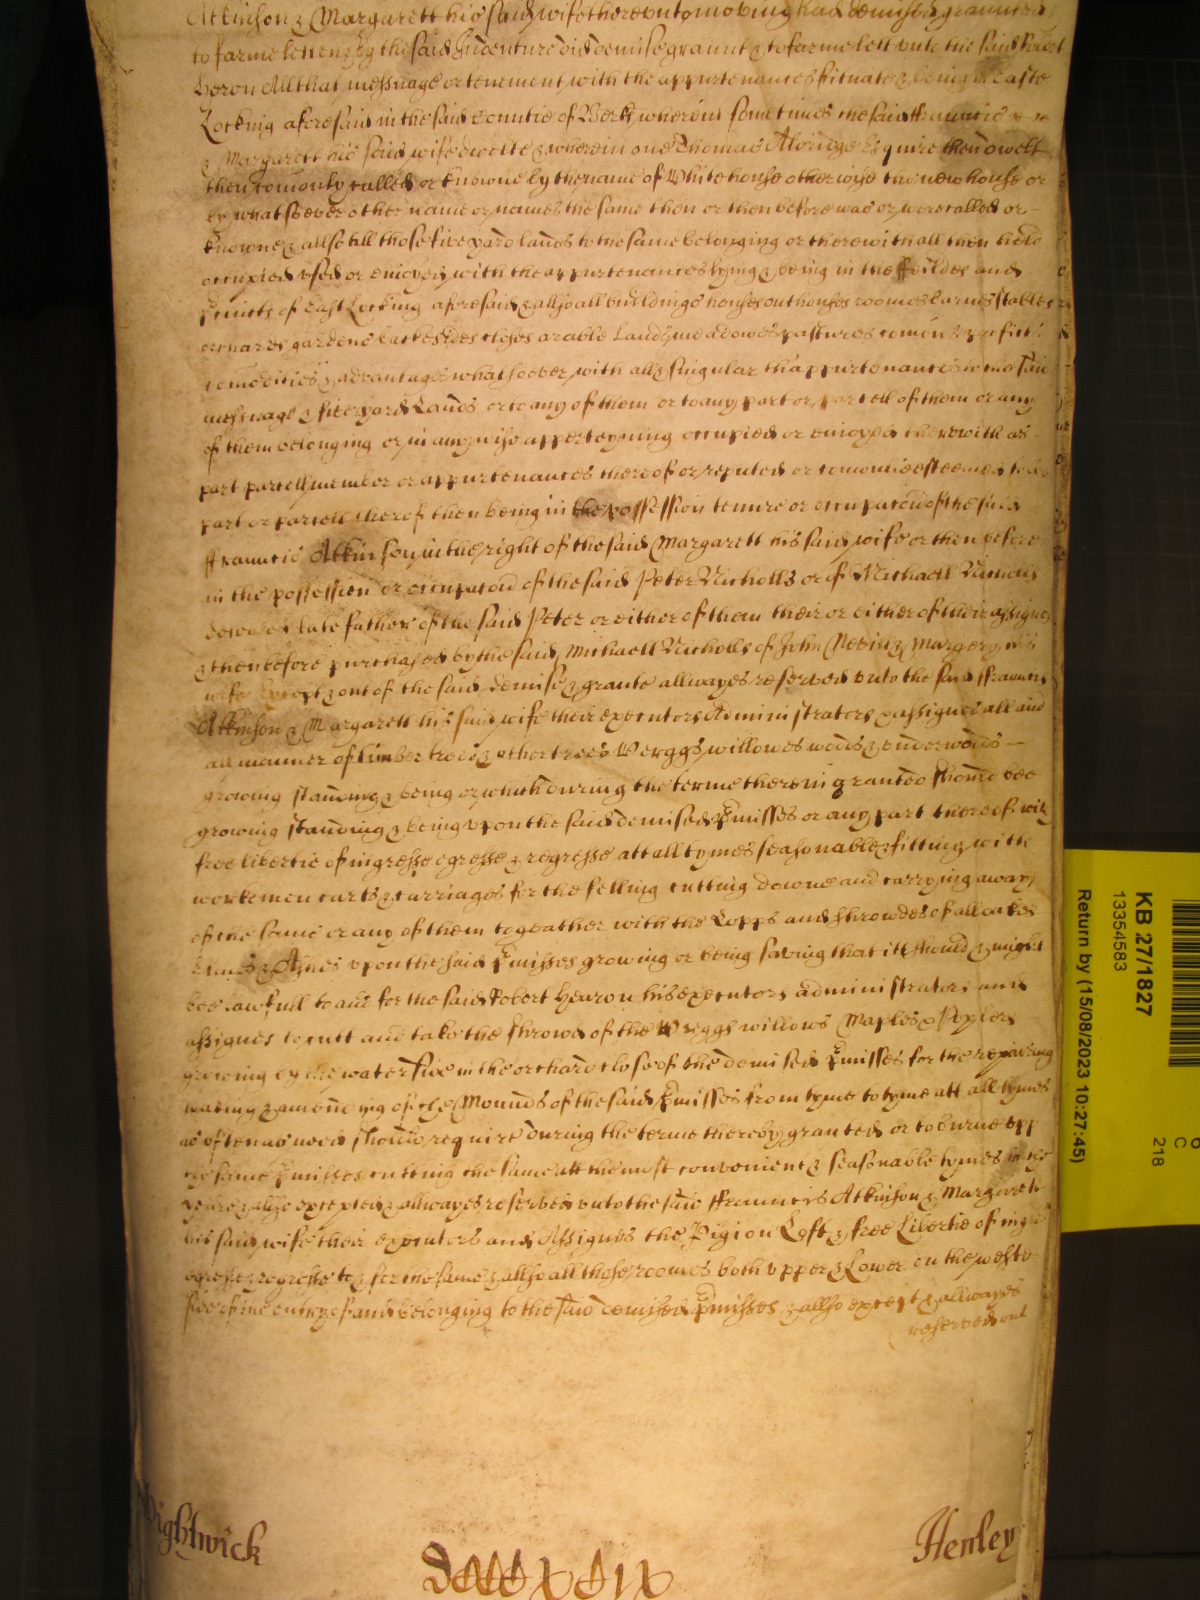 Atkinson & Margarett his said wife thereunto moving had demised graunted
to farme letten & by the said Indenture did demise graunt & to farme lett unto the said Robert
Heron All that messuage or tenement with the appurtenances situate & being in Easte
Locking aforesaid in the said Countie of Berk wherein sometimes the said ffrauncis
& Margarett his said wife dwelte & wherein one Thomas Aldridge Esquire then dwelt
then comonly called or knowne by the name of White house otherwise the new house or
by whatsoever other name or names the same then or then before was or were called or
knowne & allso all those five yard lands to the same belonging or therewithall then held
occupied used or enioyed with the appurtenances lying & being in the ffeildes and
Precincts of East Locking aforesaid & allso all buildings houses outhouses roomes barnes stables
orchares gardens backesides closes arable Land meadowes pastures comen profitt
comodities & advantages whatsoever with all & singular thappurtenances to the said
messuage & five yard Lands or to any of them or to any part or parcell of them or any
of them belonging or in any wise apperteyning occupied or enioyed therewith as
part parcell member or appurtenances thereof or reputed or comonlie esteemed to be
part or parcell therof then being in the possession tenure or occupacon of the said
ffrauncis Atkinson in the right of the said Margarett his said wife or then before
in the possession or occupacon of the said Peter Nicholls or of Michaell Nicholls
deceased late father of the said Peter or either of them their or either of their assignes
& then before purchased by the said Michaell Nicholls of John & Margery his
wife Except & out of the said demise & graunte allwayes reserved unto the said ffrauncis
Atkinson & Margarett his said wife their executors Administrators & assignes all and
all manner of timber trees & other trees Werggs willowes wods & underwods
growing standing & being or which during the terme therein granted should bee
growing standing & being upon the said demised Pmisses or any part thereof with
free libertie of ingresse egresse & regresse att all tymes seasonable & fitting with
workemen carts & carriages for the felling cutting downe and carrying away
of the same or any of them togeather with the Lopps and shrowdes of all oakes
Elmes & Ashes upon the said Pmisses growing or being saving that itt should & might
bee lawfull to and for the said Robert Hearon his executors administrators and
assignes to cutt and take the shrowds of the Wreggs willows Maples & Poplers
growing by the water side in the orchard close of the demised Pmisses for the repairing
making & amending of the Mounds of the said Pmisses from tyme to tyme att all tymes
as often as need should require during the terme thereby granted or to burne upp
the same Pmisses cutting the same att the most convenient & seasonable tymes in the
yeare & allso excepted & allwayes reserved unto the said ffrauncis Atkinson & Margarett
his said wife their executors and Assignes the Pigion Loft & free Libertie of ingresse
egresse & regresse to & for the same & allso all those roomes both upper & Lower on the weste
side of the entry of and belonging to the said demised Pmisses & allso except & allwayes
reserved out
Wightwick
Henley
KB 27/1827
13354583
Return by (15/08/2023 10:27:45)
C
218